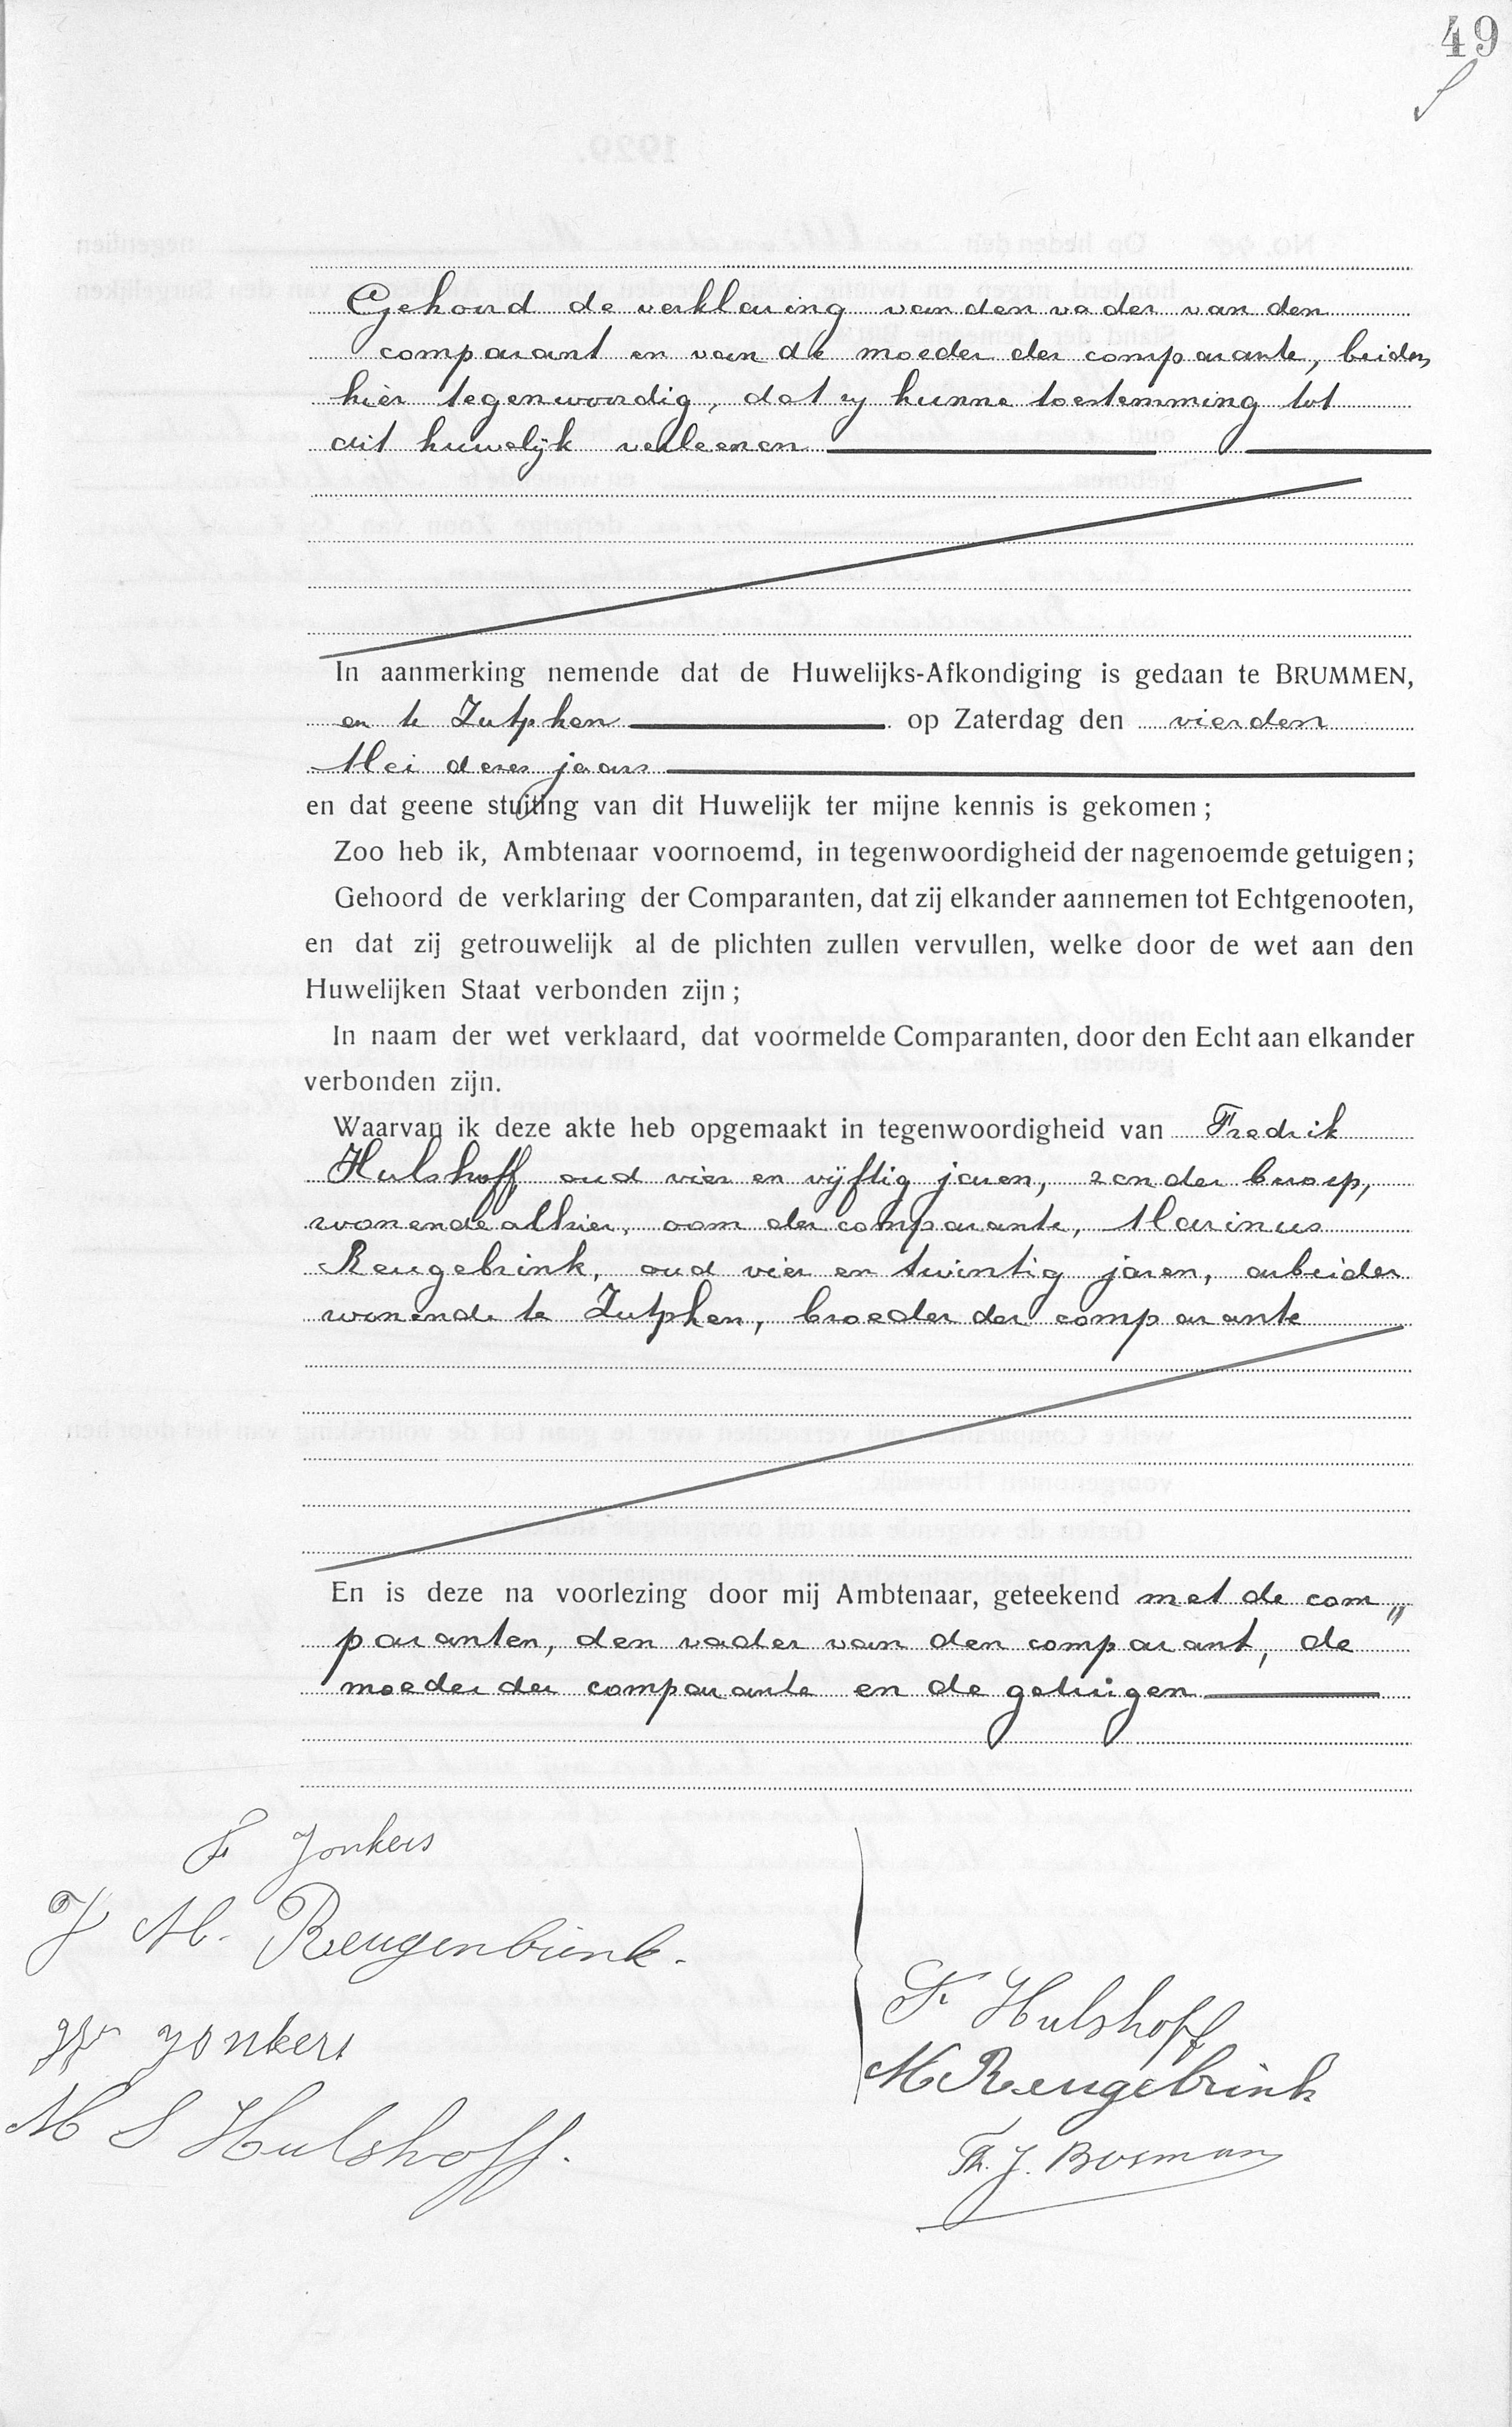 49
Gehoord de verklaring van den vader van den
comparant en van de moeder der comparante, beiden
hier tegenwoordig, dat zij hunne toestemming tot
dit huwelijk verleenen
In aanmerking nemende dat de Huwelijks-Afkondiging is gedaan te BRUMMEN,
en te Zutphen op Zaterdag den vierden
Mei dezes jaars
en dat geene stuiting van dit Huwelijk ter mijne kennis is gekomen;
Zoo heb ik, Ambtenaar voornoemd, in tegenwoordigheid der nagenoemde getuigen;
Gehoord de verklaring der Comparanten, dat zij elkander aannemen tot Echtgenooten,
en dat zij getrouwelijk al de plichten zullen vervullen, welke door de wet aan den
Huwelijken Staat verbonden zijn;
In naam der wet verklaard, dat voormelde Comparanten, door den Echt aan elkander
verbonden zijn.
Waarvan ik deze akte heb opgemaakt in tegenwoordigheid van Fredrik
Hulshoff, oud vier en vijftig jaren, zonder beroep,
wonende alhier, oom der comparante, Marinus
Reugebrink, oud vier en twintig jaren, arbeider
wonende te Zutphen, broeder der comparante
En is deze na voorlezing door mij Ambtenaar, geteekend met de com„
paranten, den vader van den comparant, de
moeder der comparante en de getuigen
F Jonkers
J M. Reugenbrink.
Jonkers
M S Hulshoff.
F Hulshoff
M Reugebrink
Th. J. Bosman